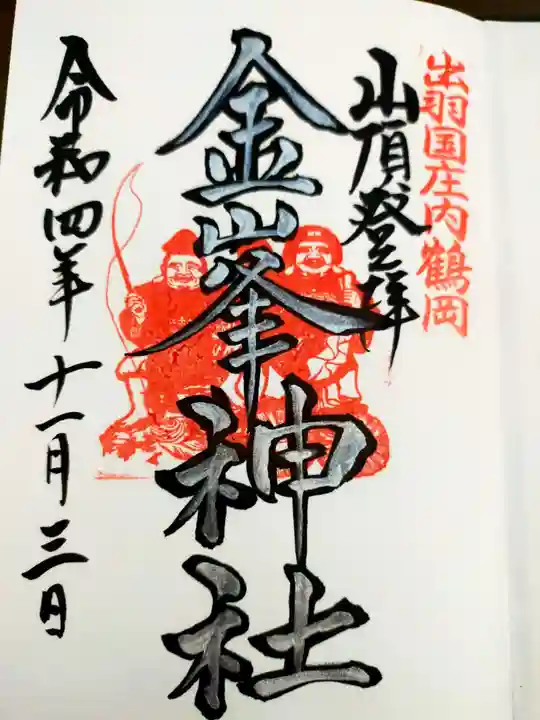 出羽国庄内鶴岡
山頂登拝
金峯神社
令和四年十一月三日